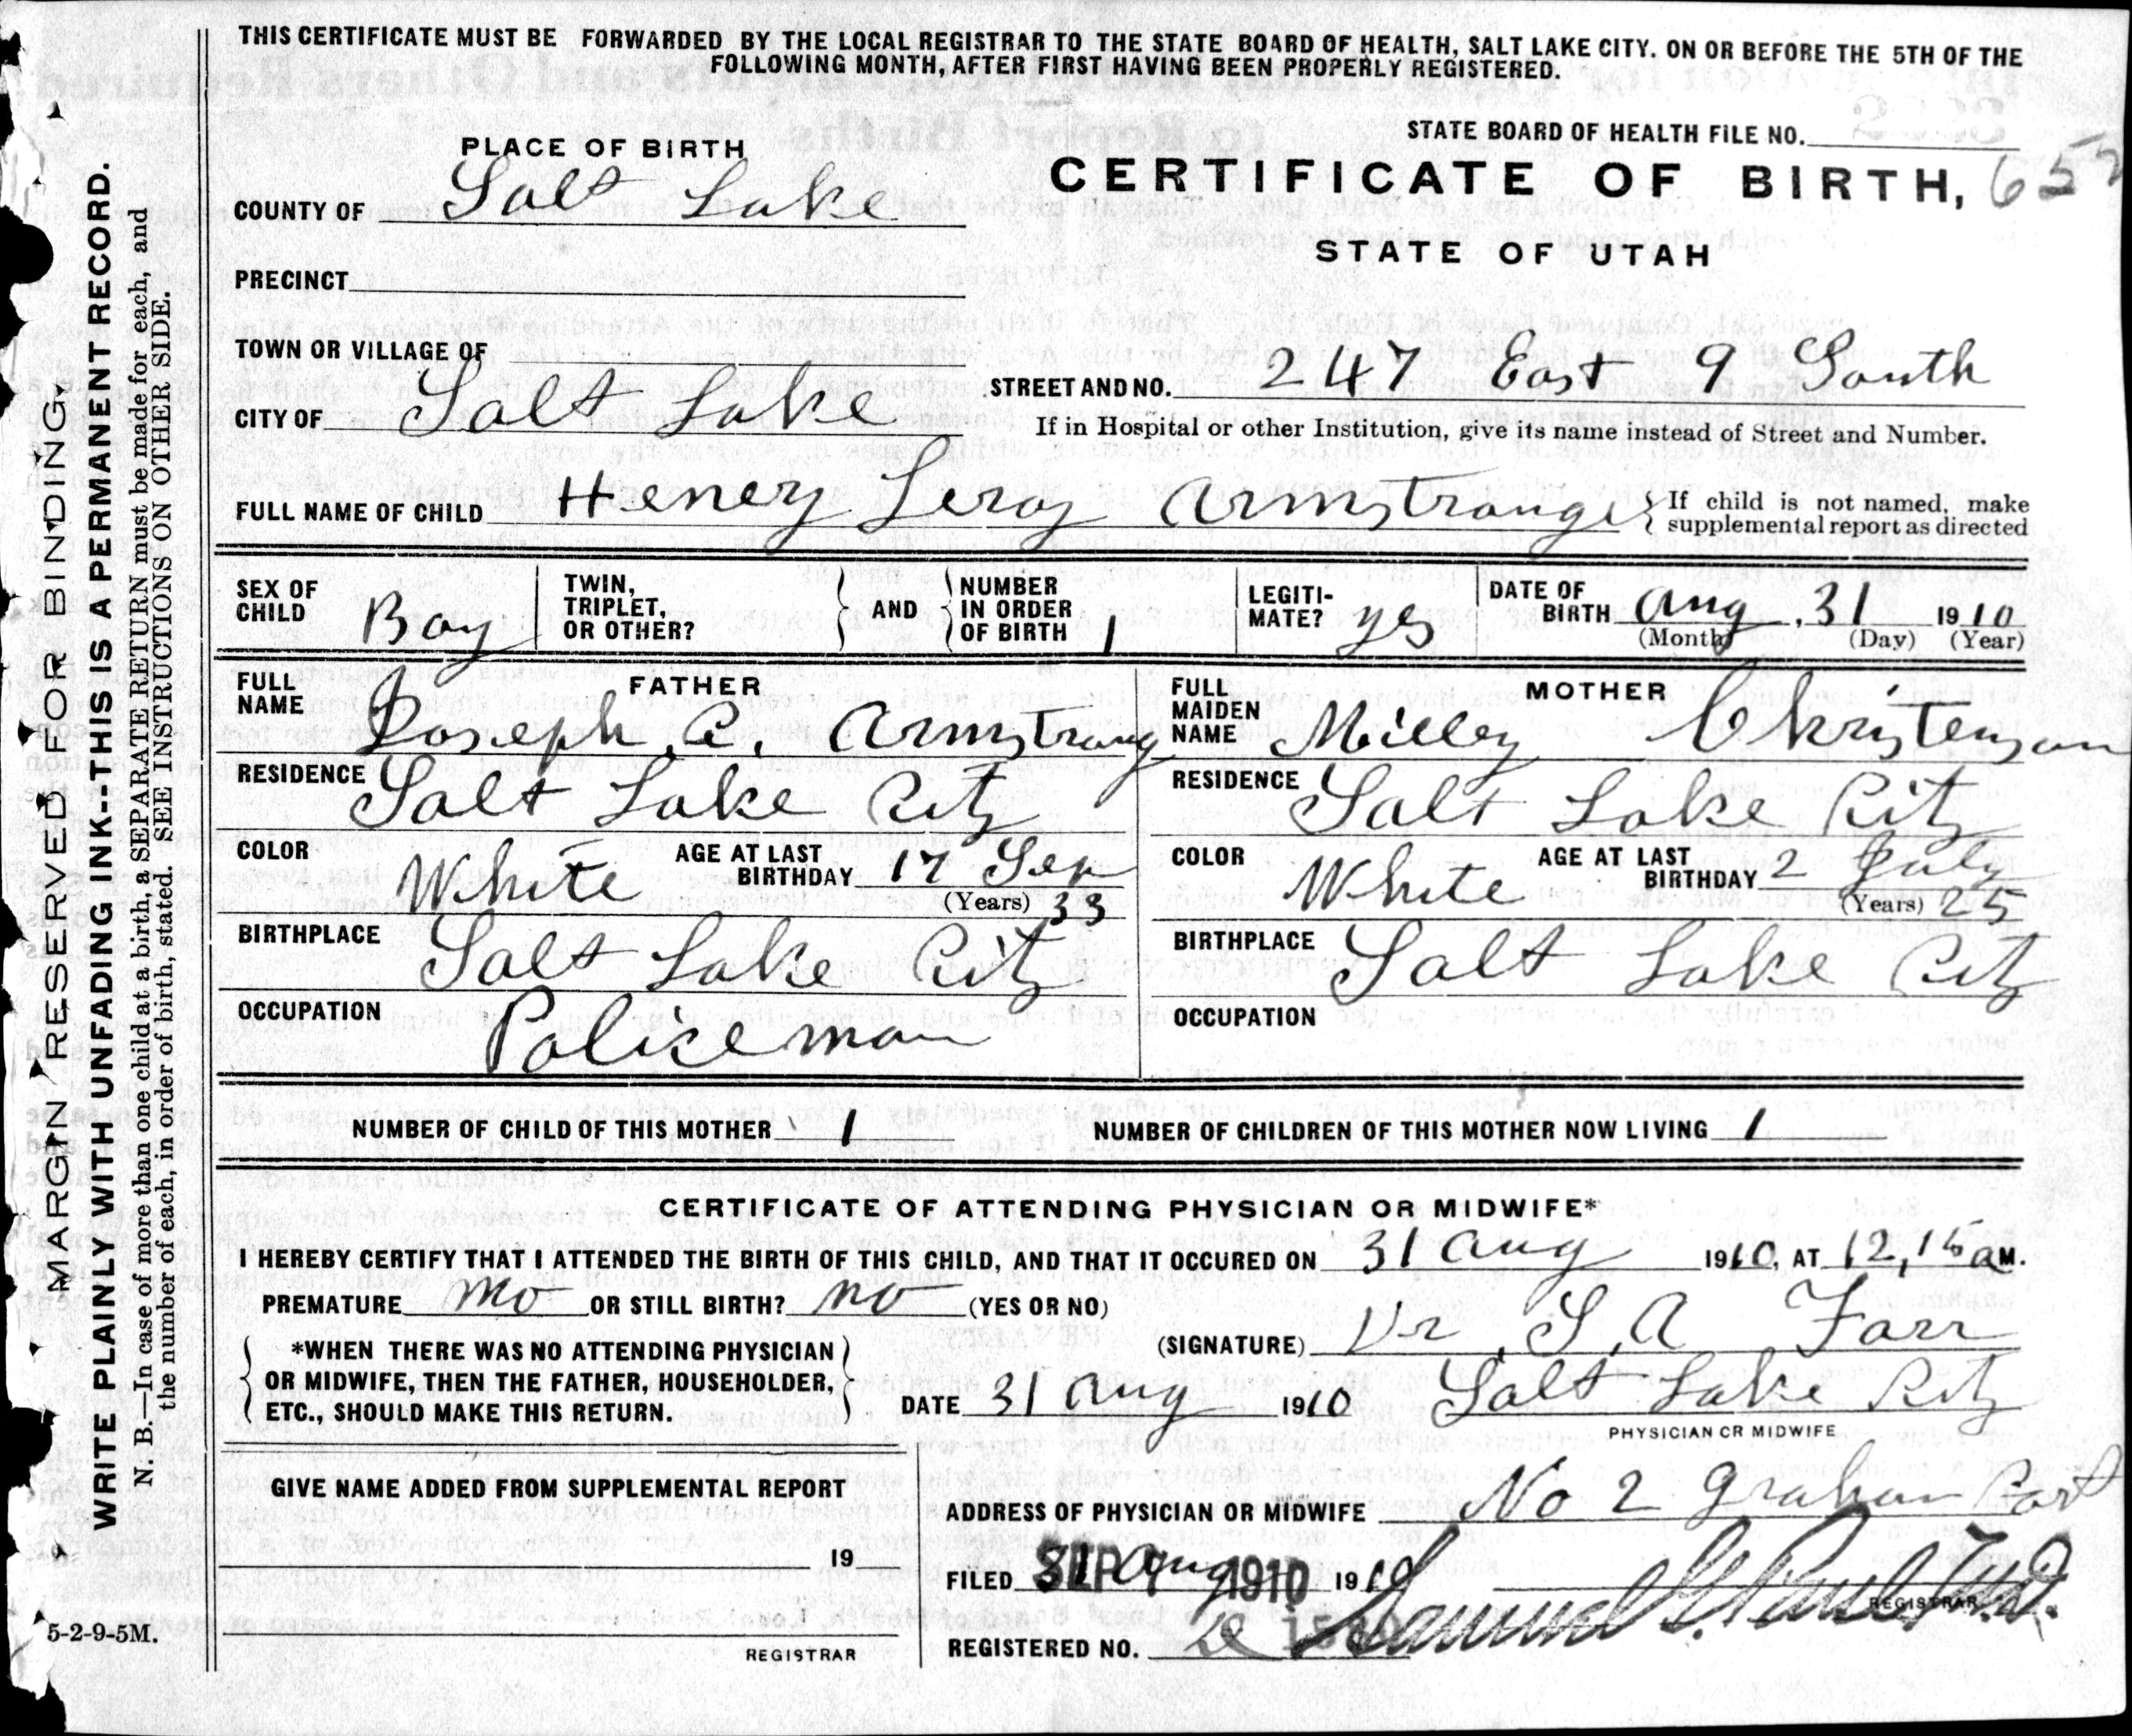 THIS CERTIFICATE MUST BE FORWARDED BY THE LOCAL REGISTRAR TO THE STATE BOARD OF HEALTH, SALT LAKE CITY. ON OR BEFORE THE 5TH OF THE
FOLLOWING MONTH, AFTER FIRST HAVING BEEN PROPERLY REGISTERED.
MARGIN RESERVED FOR BINDING.
WRITE PLAINLY WITH UNFADING INK---THIS IS A PERMANENT RECORD.
N. B.—In case of more than one child at a birth, a SEPARATE RETURN must be made for each, and
the number of each, in order of birth, stated. SEE INSTRUCTIONS ON OTHER SIDE.
STATE BOARD OF HEALTH FILE NO.
PLACE OF BIRTH
CERTIFICATE OF BIRTH,
COUNTY OF Salt Lake
STATE OF UTAH
PRECINCT
TOWN OR VILLAGE OF
STREET AND NO. 247 East 9 South
CITY OF Salt Lake
If in Hospital or other Institution, give its name instead of Street and Number.
FULL NAME OF CHILD Heney Leroy Armstrong
If child is not named, make
supplemental report as directed
SEX OF
CHILD Boy
TWIN,
TRIPLET,
OR OTHER?
AND
NUMBER
IN ORDER
OF BIRTH 1
LEGITI-
MATE? yes
DATE OF
BIRTH Aug, 31 1910
(Month) (Day) (Year)
FATHER
FULL
NAME Joseph C. Armstrong
RESIDENCE Salt Lake City
COLOR White
AGE AT LAST
BIRTHDAY 17 Sep
(Years) 33
BIRTHPLACE Salt Lake City
OCCUPATION Policeman
MOTHER
FULL
MAIDEN
NAME Milley Christensen
RESIDENCE Salt Lake City
COLOR White
AGE AT LAST
BIRTHDAY 2 July
(Years) 25
BIRTHPLACE Salt Lake City
OCCUPATION
NUMBER OF CHILD OF THIS MOTHER 1
NUMBER OF CHILDREN OF THIS MOTHER NOW LIVING 1
CERTIFICATE OF ATTENDING PHYSICIAN OR MIDWIFE*
I HEREBY CERTIFY THAT I ATTENDED THE BIRTH OF THIS CHILD, AND THAT IT OCCURED ON 31 Aug 1910, AT 12,15 a M.
PREMATURE no OR STILL BIRTH? no (YES OR NO)
(SIGNATURE) Dr. S. A Farr
*WHEN THERE WAS NO ATTENDING PHYSICIAN
OR MIDWIFE, THEN THE FATHER, HOUSEHOLDER,
ETC., SHOULD MAKE THIS RETURN.
DATE 31 Aug 1910 Salt Lake City
PHYSICIAN OR MIDWIFE
GIVE NAME ADDED FROM SUPPLEMENTAL REPORT
ADDRESS OF PHYSICIAN OR MIDWIFE No 2 Graham Cort
19
FILED 31 Aug SEP 1910 1910
REGISTRAR
REGISTERED NO.
REGISTRAR
5-2-9-5M.